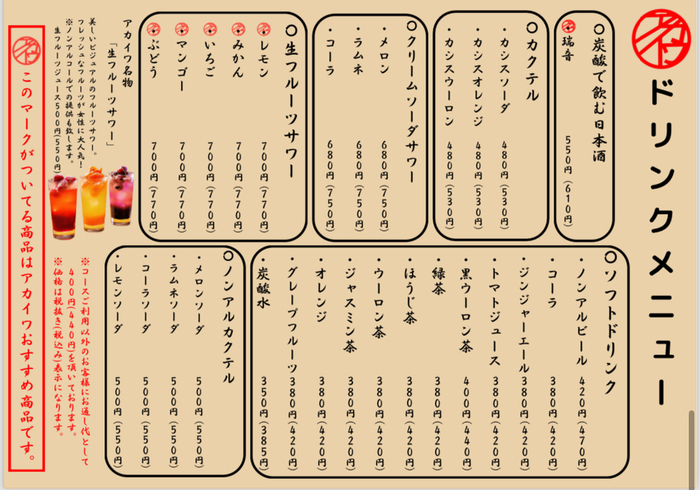 アカイワ
ドリンクメニュー
○炭酸で飲む日本酒
瑞音 550円(610円)
○カクテル
・カシスソーダ 480円(530円)
・カシスオレンジ 480円(530円)
・カシスウーロン 480円(530円)
○クリームソーダサワー
・メロン 680円(750円)
・ラムネ 680円(750円)
・コーラ 680円(750円)
○生フルーツサワー
レモン 700円(770円)
みかん 700円(770円)
いちご 700円(770円)
マンゴー 700円(770円)
ぶどう 700円(770円)
アカイワ名物
「生フルーツサワー」
美しいビジュアルのフルーツサワー。
フレッシュなフルーツが女性に大人気!
※ノンアルコールでの提供も致します。
生フルーツジュース500円(550円)
○ソフトドリンク
・ノンアルビール 420円(470円)
・コーラ 380円(420円)
・ジンジャーエール 380円(420円)
・トマトジュース 380円(420円)
・黒ウーロン茶 400円(440円)
・緑茶 380円(420円)
・ほうじ茶 380円(420円)
・ウーロン茶 380円(420円)
・ジャスミン茶 380円(420円)
・オレンジ 380円(420円)
・グレープフルーツ 380円(420円)
・炭酸水 350円(385円)
○ノンアルカクテル
・メロンソーダ 500円(550円)
・ラムネソーダ 500円(550円)
・コーラソーダ 500円(550円)
・レモンソーダ 500円(550円)
※コースご利用以外のお客様にお通し代として
400円(440円)を頂いております。
※価格は税抜き(税込み)表示になります。
このマークがついてる商品はアカイワおすすめ商品です。